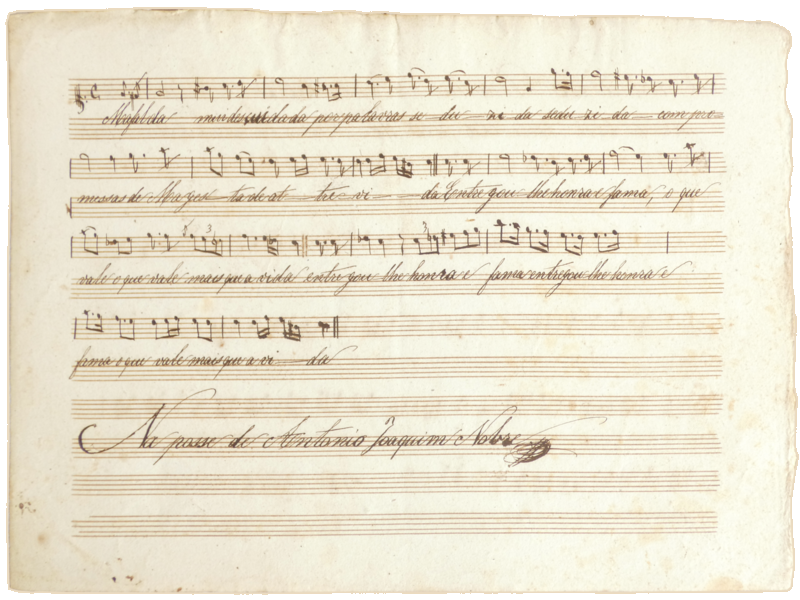 Mafalda mui descuidada por palavras se du zi da sedu zi da com pro=
messas de Mages ta de at tre vi da Entregou lhe honra e fama, o que
3 3
vale o que vale mais que a vida entregou lhe honra e fama entregou lhe honra e
fama o que vale mais que a vi da
Na posse de Antonio Joaquim Nobre